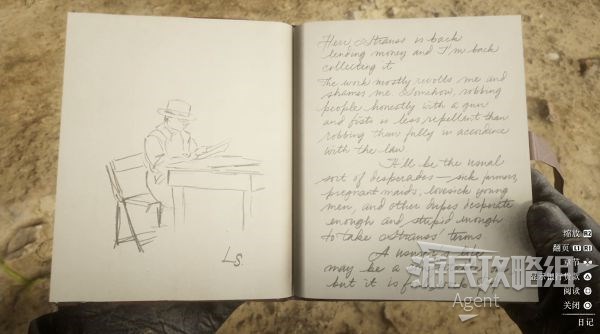 LS.
Herr Strauss is back
lending money and I'm back
collecting it.
The work mostly revolts me and
shames me. Somehow, robbing
people honestly with a gun
and fists is less repellent than
robbing them fully in accordance
with the law.
It'll be the usual
sort of desperados - sick farmers,
pregnant maids, lovesick young
men, and other dupes desperate
enough and stupid enough
to take Strauss' terms
A usur
may be a
but it is f
游民攻略组
Agent
缩放 R2
翻页 L1 R1
阅读
关闭
日记